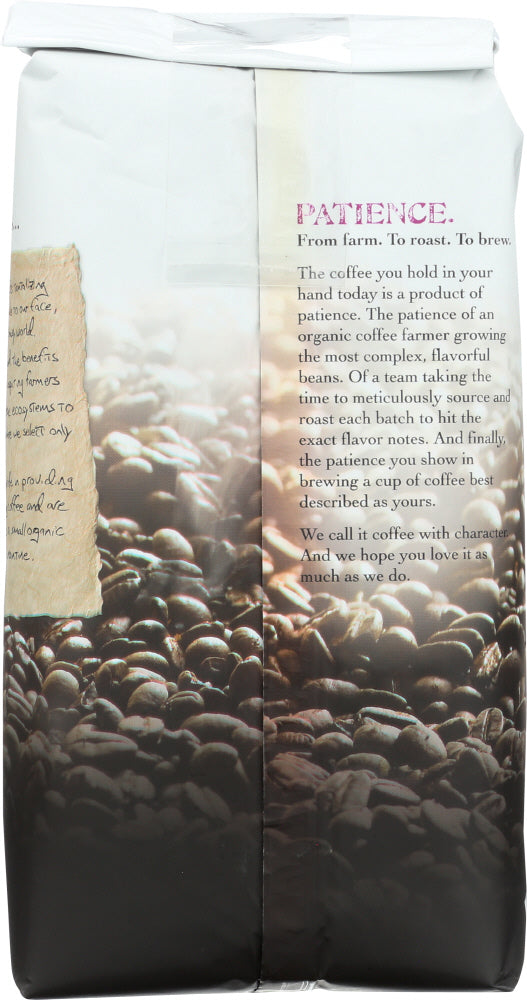 ...
nalizing
surface,
world.
the benefits
farmers
ecosystems to
we select only
providing
coffee and are
small organic
PATIENCE.
From farm. To roast. To brew.
The coffee you hold in your
hand today is a product of
patience. The patience of an
organic coffee farmer growing
the most complex, flavorful
beans. Of a team taking the
time to meticulously source and
roast each batch to hit the
exact flavor notes. And finally,
the patience you show in
brewing a cup of coffee best
described as yours.
We call it coffee with character.
And we hope you love it as
much as we do.